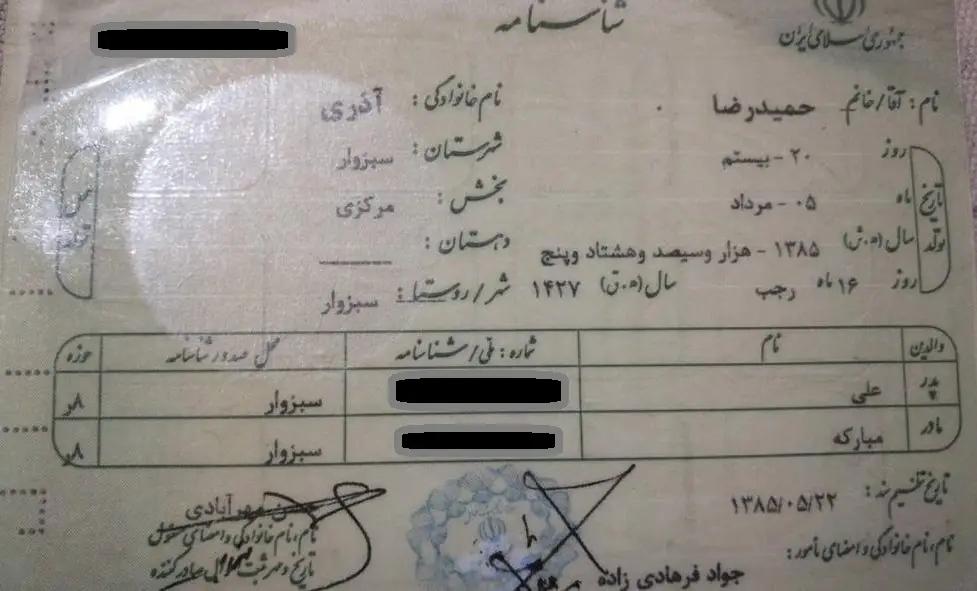 شناسنامه
جمهوری اسلامی ایران
نام: آقا/خانم حمیدرضا نام خانوادگی: آذری
روز ۲۰ - بیستم شهرستان: سبزوار
تاریخ تولد
ماه ۰۵ - مرداد بخش: مرکزی
سال (ه.ش) ۱۳۸۵ - هزار وسیصد وهشتاد وپنج دهستان:
روز ۱۶ ماه رجب سال (ه.ق) ۱۴۲۷ شهر/روستا: سبزوار
والدین نام شماره: ملی/شناسنامه محل صدور شناسنامه حوزه
پدر علی سبزوار ۸ر
مادر مبارکه سبزوار ۸ر
تاریخ تنظیم سند: ۱۳۸۵/۰۵/۲۲
نام، نام خانوادگی و امضای مأمور:
جواد فرهادی زاده
مهرآبادی
نام، نام خانوادگی و امضای مسئول
تاریخ و مهر ثبت احوال صادرکننده